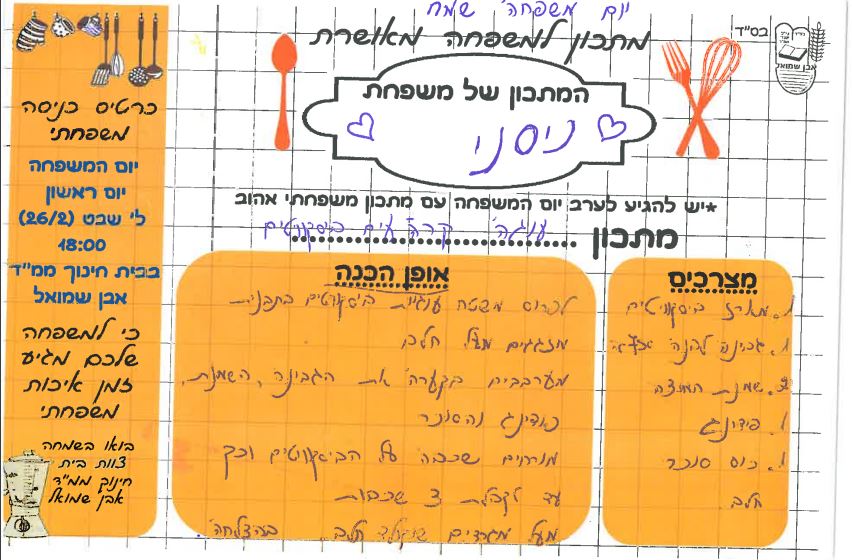 יום משפחה שמח
בס"ד
מתכון למשפחה מאושרת
המתכון של משפחת
ניסני
*יש להגיע לערב יום המשפחה עם מתכון משפחתי אהוב
מתכון עוגה קרה עם ביסקוויטים
מצרכים
1. מארז ביסקוויטים
1. גבינה לבנה
2. שמנת חמוצה
1. פודינג
1. כוס סוכר
חלב
אופן הכנה
לפרוס משטח עוגיות ביסקוויטים בתבנית
מזגגים מעל חלב
מערבבים בקערה את הגבינה, השמנת,
פודינג והסוכר
מורחים שכבה על הביסקוויטים וכך
עד לקבלת 3 שכבות
מעל מגרדים שוקולד חלב בהצלחה
כרטיס כניסה
משפחתי
יום המשפחה
יום ראשון
ל' שבט (26/2)
18:00
בבית חינוך ממ"ד
אבן שמואל
כי למשפחה
שלכם מגיע
זמן איכות
משפחתי
בואו בשמחה
צוות בית
חינוך ממ"ד
אבן שמואל
אבן שמואל